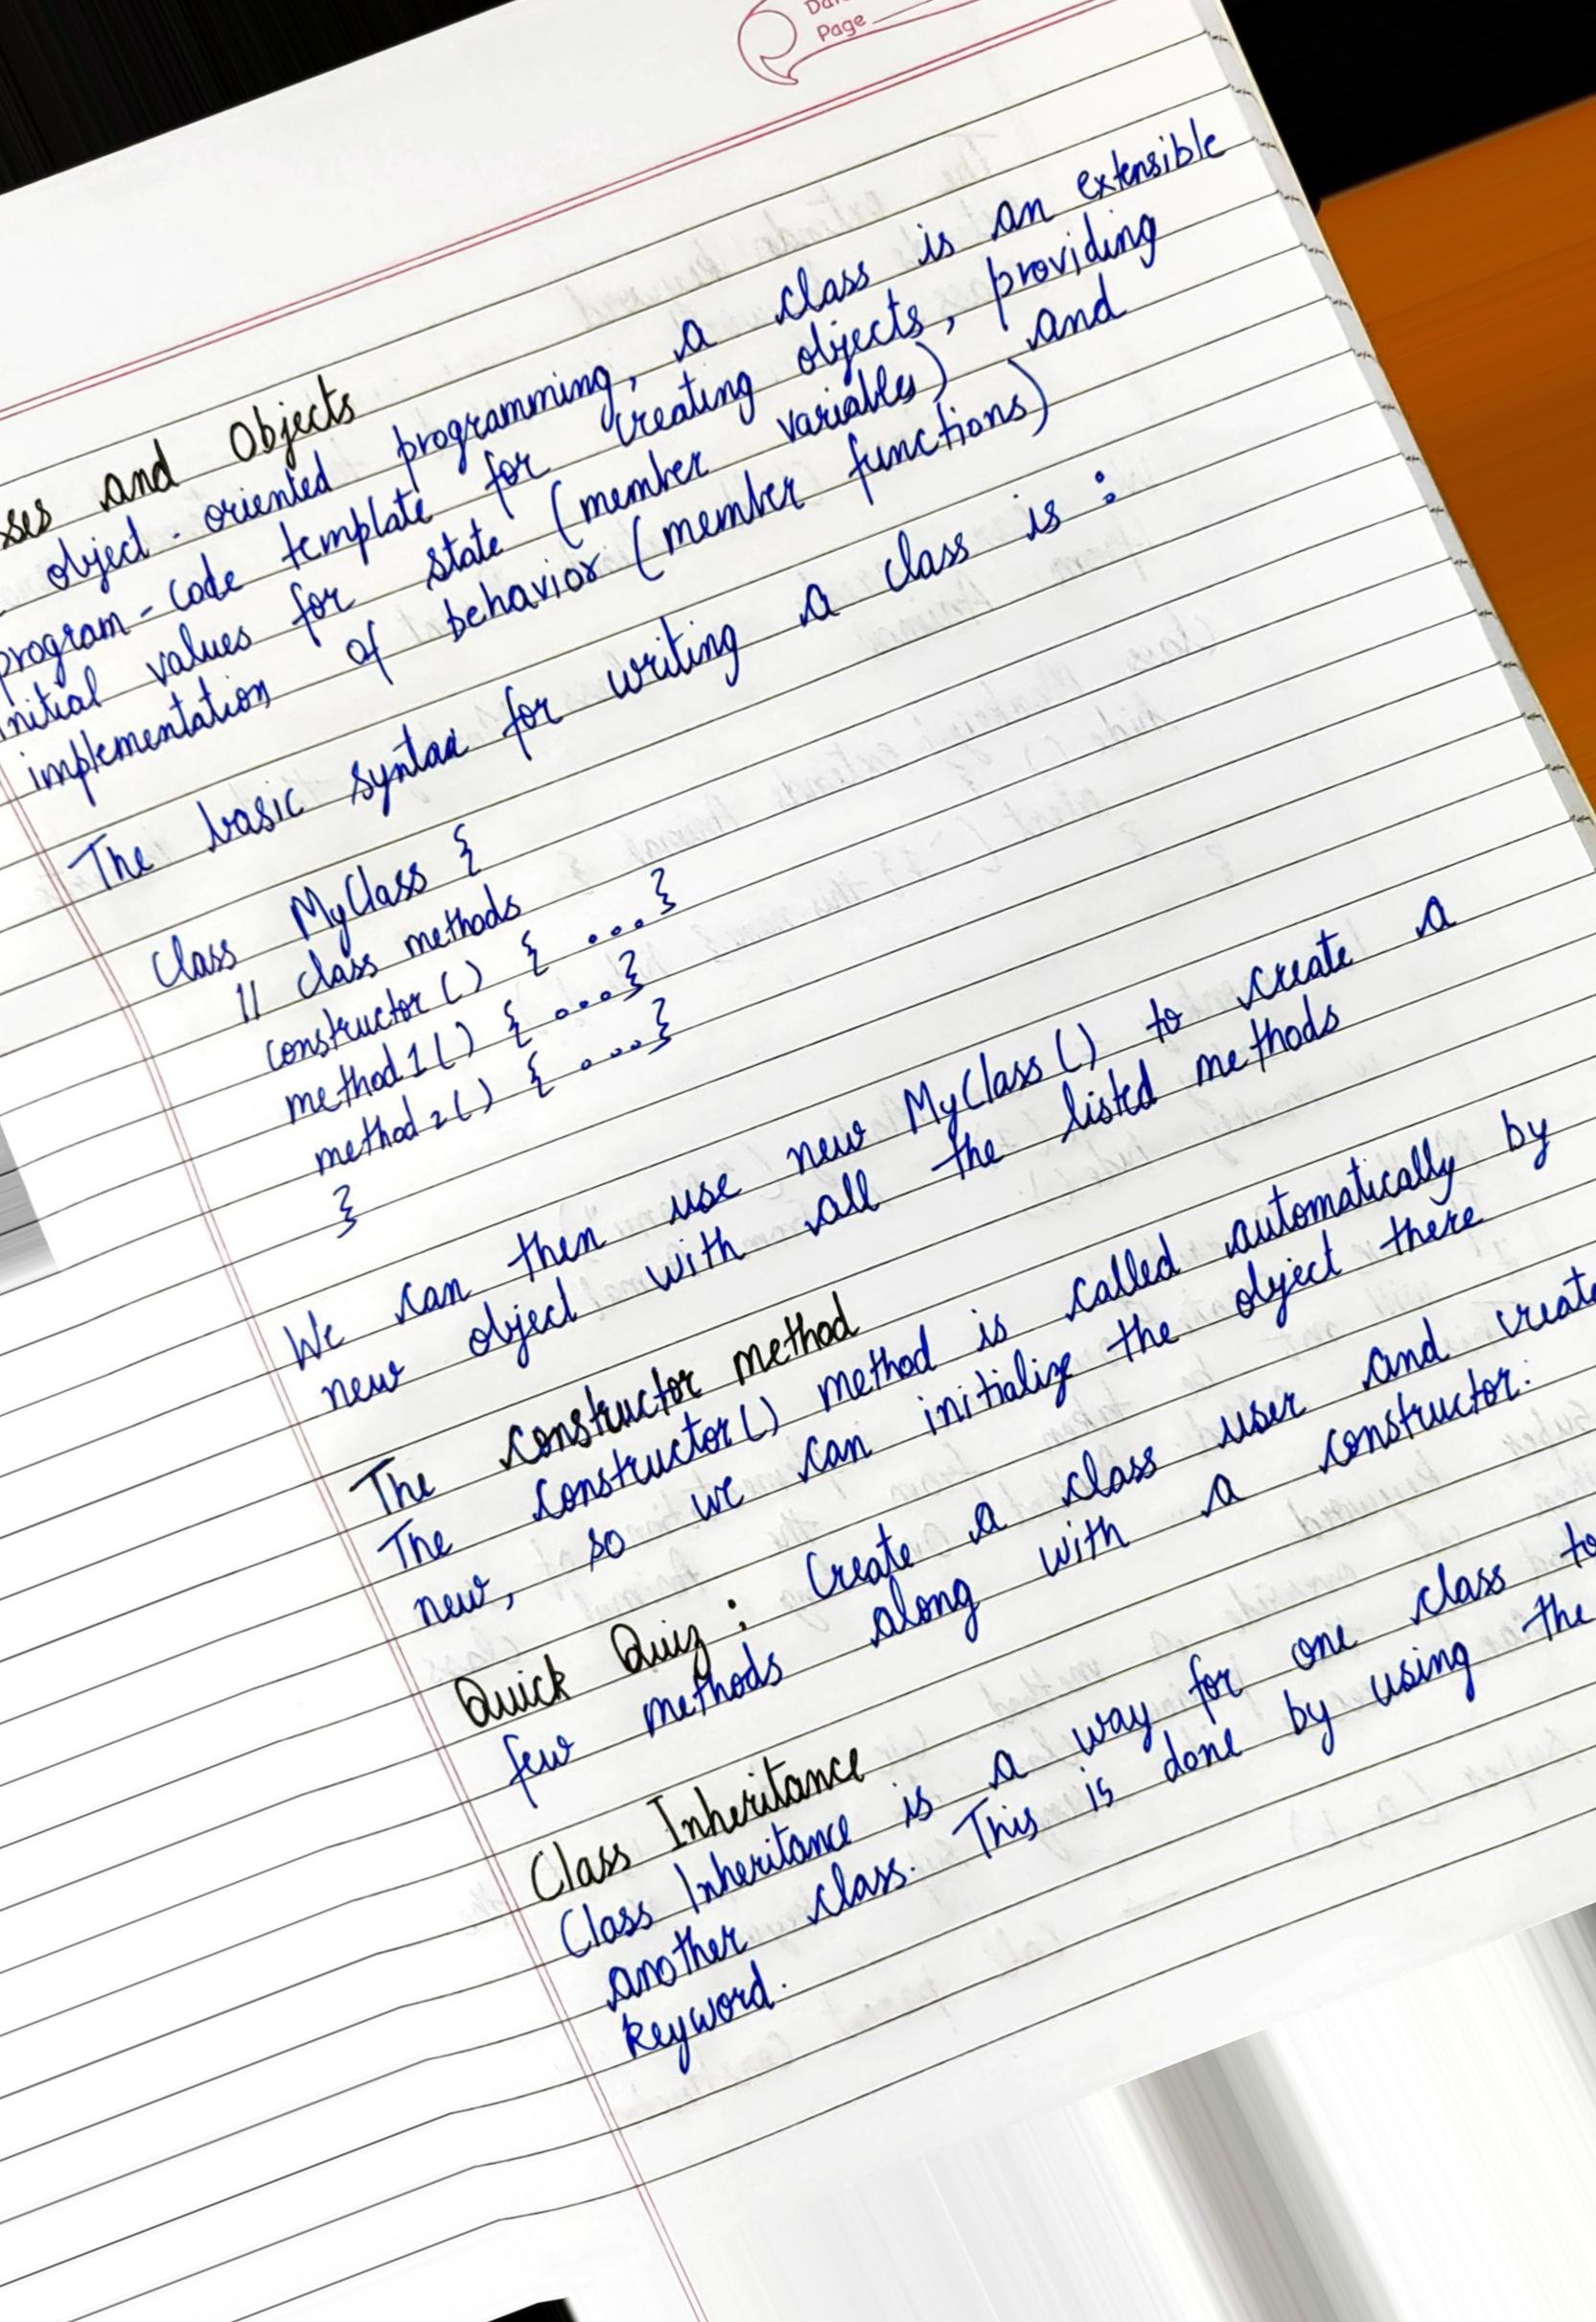 Page
and Objects
object-oriented programming, a class is an extensible
program-code template for creating objects, providing
initial values for state (member variables) and
implementation of behavior (member functions)
The basic syntax for writing a class is :
class MyClass {
// class methods
constructor() { ... }
method1() { .... }
method2() { .... }
}
We can then use new MyClass() to create a
new object with all the listed methods
The constructor method
The constructor() method is called automatically by
new, so we can initialize the object there
Quick Quiz : Create a class user and create
few methods along with a constructor.
Class Inheritance
Class Inheritance is a way for one class to
another class. This is done by using the
keyword.